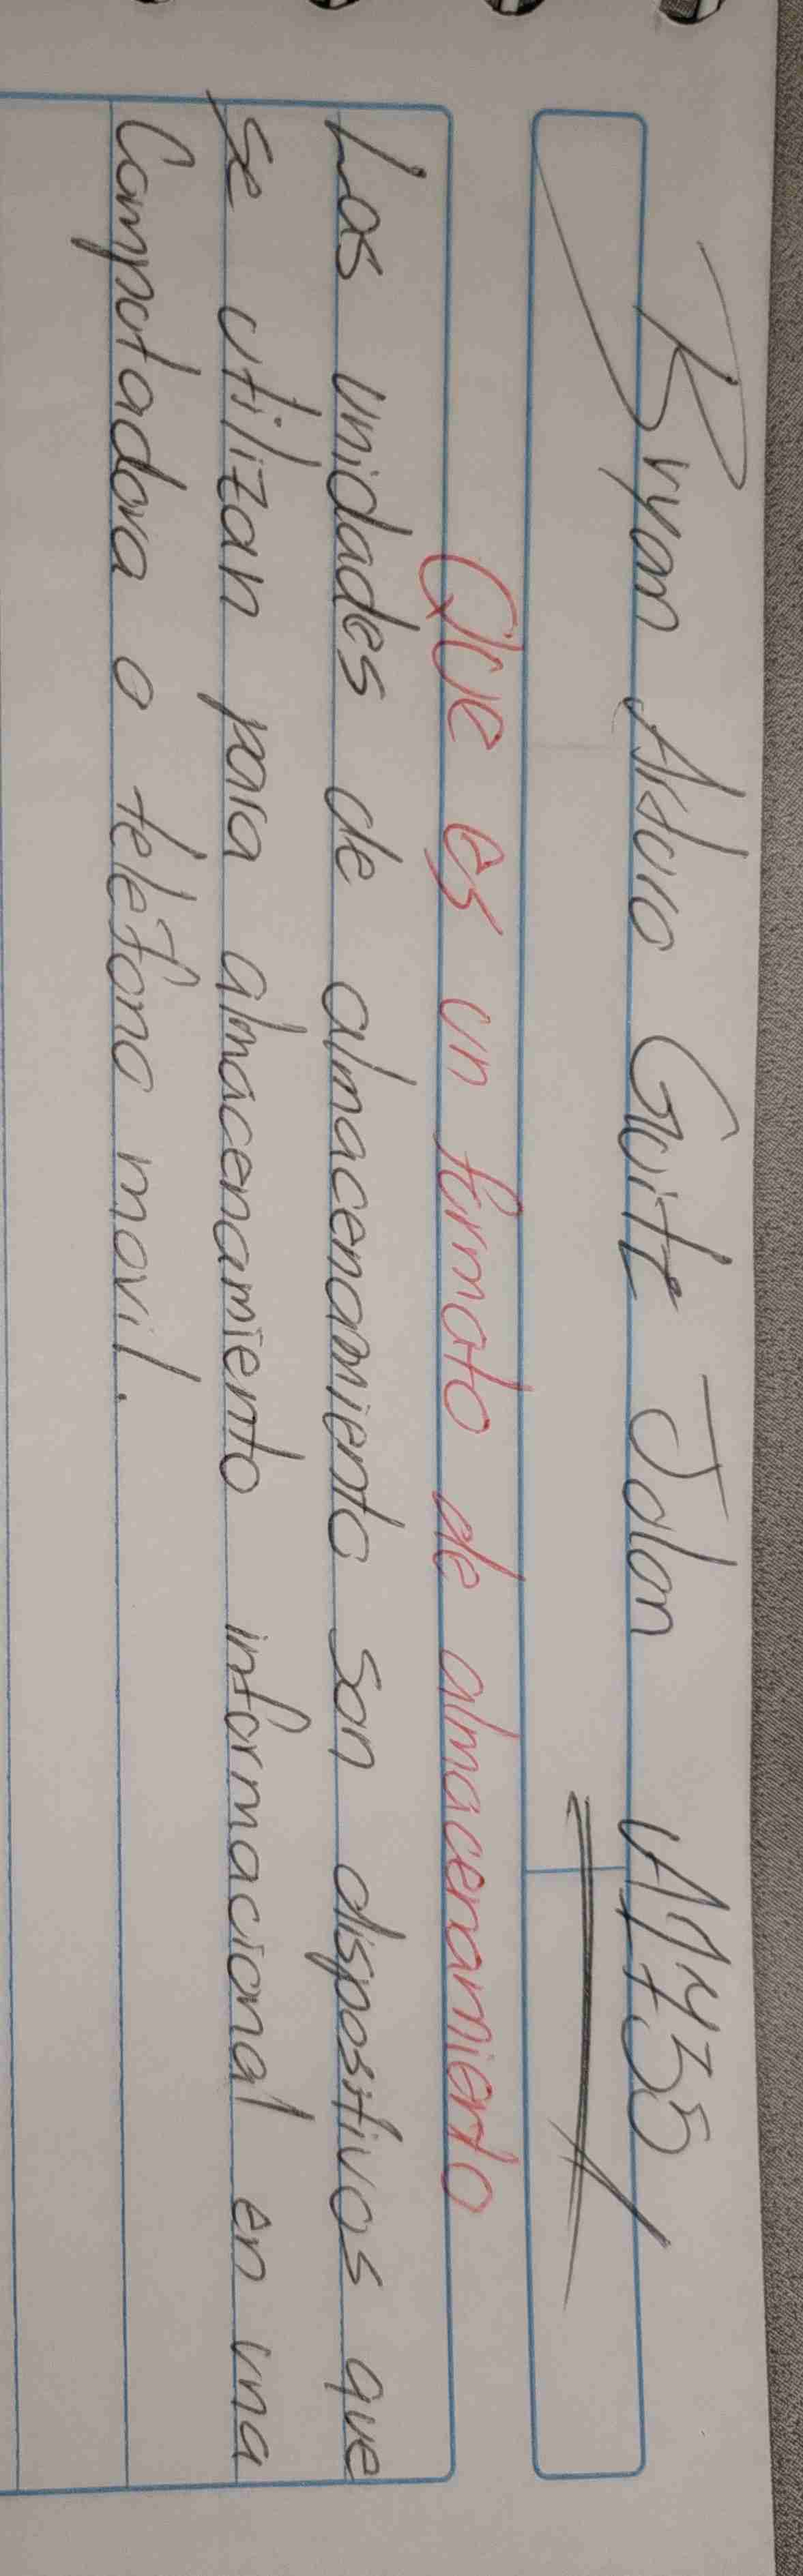 Bryan Arturo Guitz Jolon
Que es un formato de almacenamiento
Los unidades de almacenamiento son dispositivos que
se utilizan para almacenamiento informacional en una
Computadora o telefono movil.